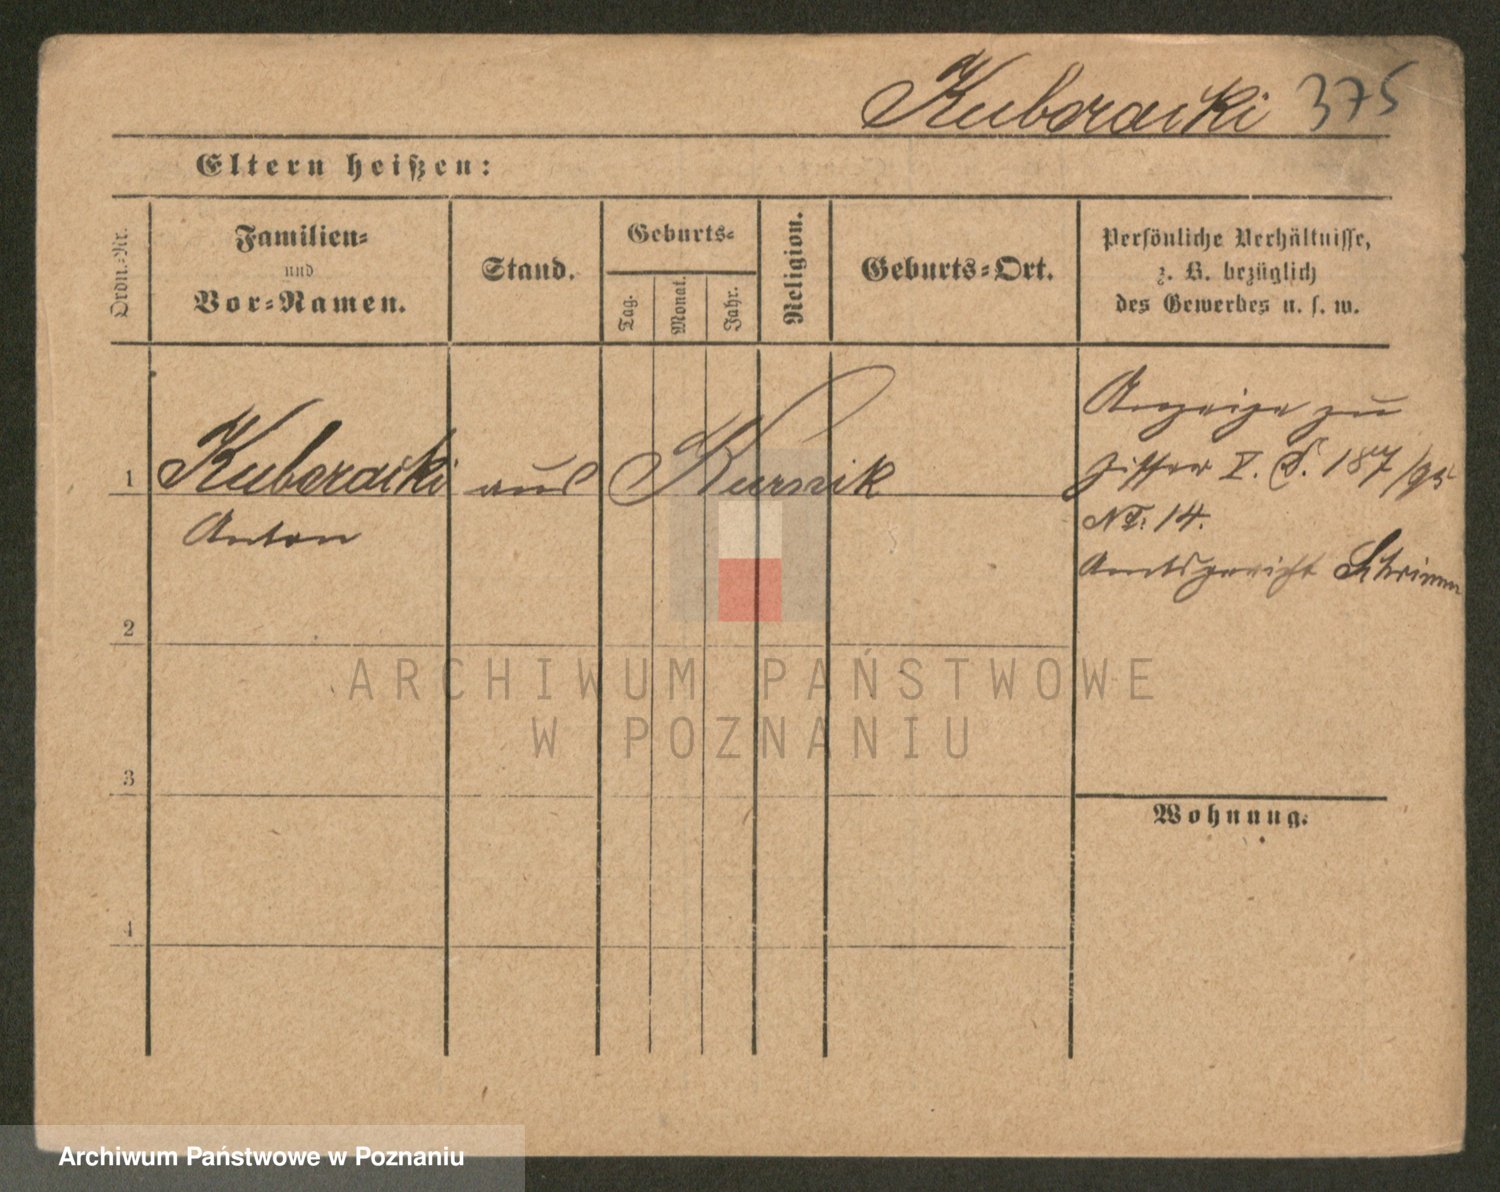 Kuberacki 375
Eltern heißen:
Ordn.-Nr.
Familien-
und
Vor-Namen.
Stand.
Geburts-
Tag.
Monat.
Jahr.
Religion.
Geburts-Ort.
Persönliche Verhältnisse,
z. B. bezüglich
des Gewerbes u. s. w.
1 Kuberacki aus Kurnik
Anton
Anzeige zu
Ziffer V. D. 187/95
No: 14.
Amtsgericht Schrimm
2
3
4
Wohnung.
ARCHIWUM PAŃSTWOWE
W POZNANIU
Archiwum Państwowe w Poznaniu